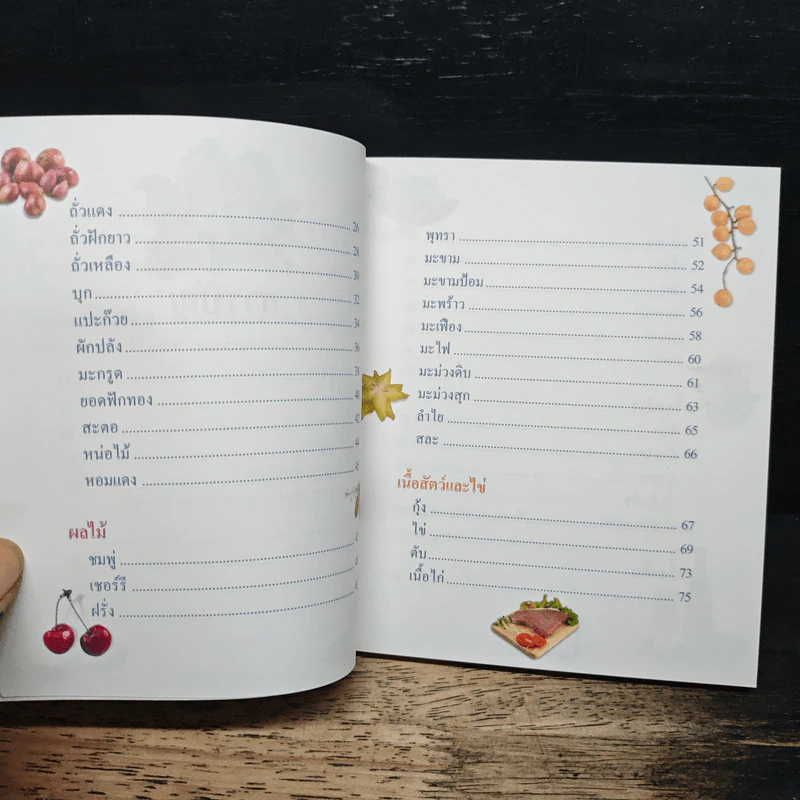 ถั่วแดง ........ 26
ถั่วฝักยาว ........ 28
ถั่วเหลือง ........ 30
บุก ........ 32
แปะก๊วย ........ 34
ผักปลัง ........ 36
มะกรูด ........ 38
ยอดฟักทอง ........ 40
สะตอ ........ 42
หน่อไม้ ........ 44
หอมแดง ........ 45
ผลไม้
ชมพู่ ........
เชอร์รี ........
ฝรั่ง ........
พุทรา ........ 51
มะขาม ........ 52
มะขามป้อม ........ 54
มะพร้าว ........ 56
มะเฟือง ........ 58
มะไฟ ........ 60
มะม่วงดิบ ........ 61
มะม่วงสุก ........ 63
ลำไย ........ 65
สละ ........ 66
เนื้อสัตว์และไข่
กุ้ง ........ 67
ไข่ ........ 69
ตับ ........ 73
เนื้อไก่ ........ 75